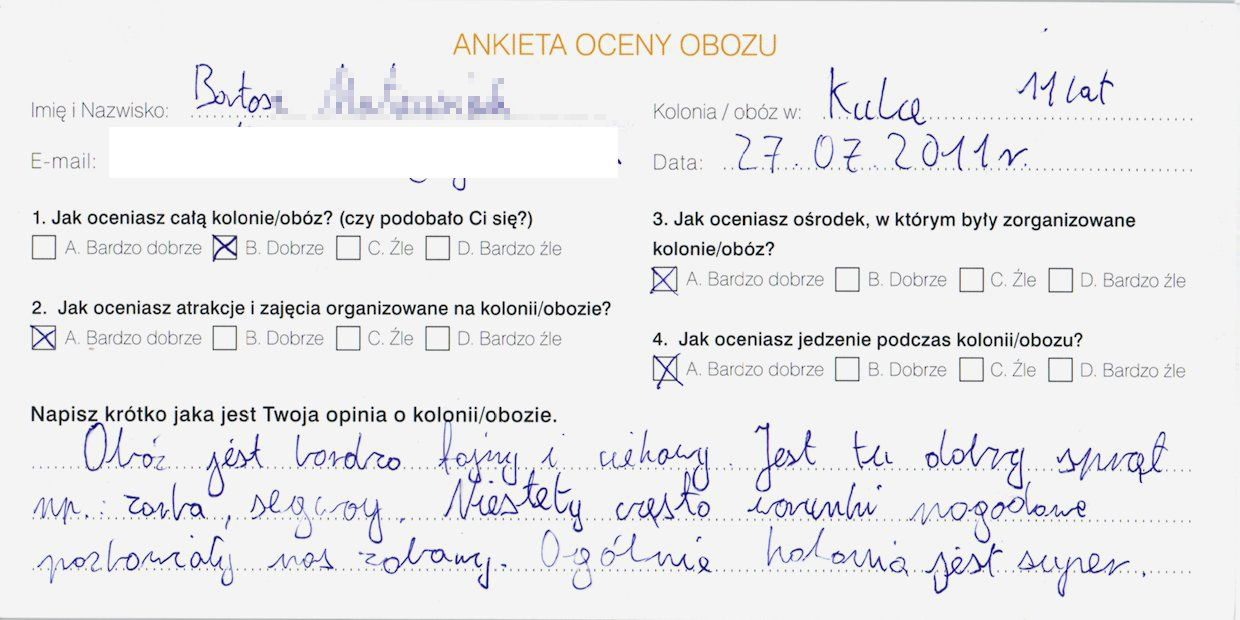 ANKIETA OCENY OBOZU
Imię i Nazwisko: Bartosz
Kolonia / obóz w: Kulce 11 lat
E-mail:
Data: 27.07.2011r.
1. Jak oceniasz całą kolonie/obóz? (czy podobało Ci się?)
A. Bardzo dobrze B. Dobrze C. Źle D. Bardzo źle
2. Jak oceniasz atrakcje i zajęcia organizowane na kolonii/obozie?
A. Bardzo dobrze B. Dobrze C. Źle D. Bardzo źle
3. Jak oceniasz ośrodek, w którym były zorganizowane
kolonie/obóz?
A. Bardzo dobrze B. Dobrze C. Źle D. Bardzo źle
4. Jak oceniasz jedzenie podczas kolonii/obozu?
A. Bardzo dobrze B. Dobrze C. Źle D. Bardzo źle
Napisz krótko jaka jest Twoja opinia o kolonii/obozie.
Obóz jest bardzo fajny i ciekawy. Jest tu dobry sprzęt
np.: zorba, segwey. Niestety często warunki pogodowe
pozbawiały nas zabawy. Ogólnie kolonia jest super.